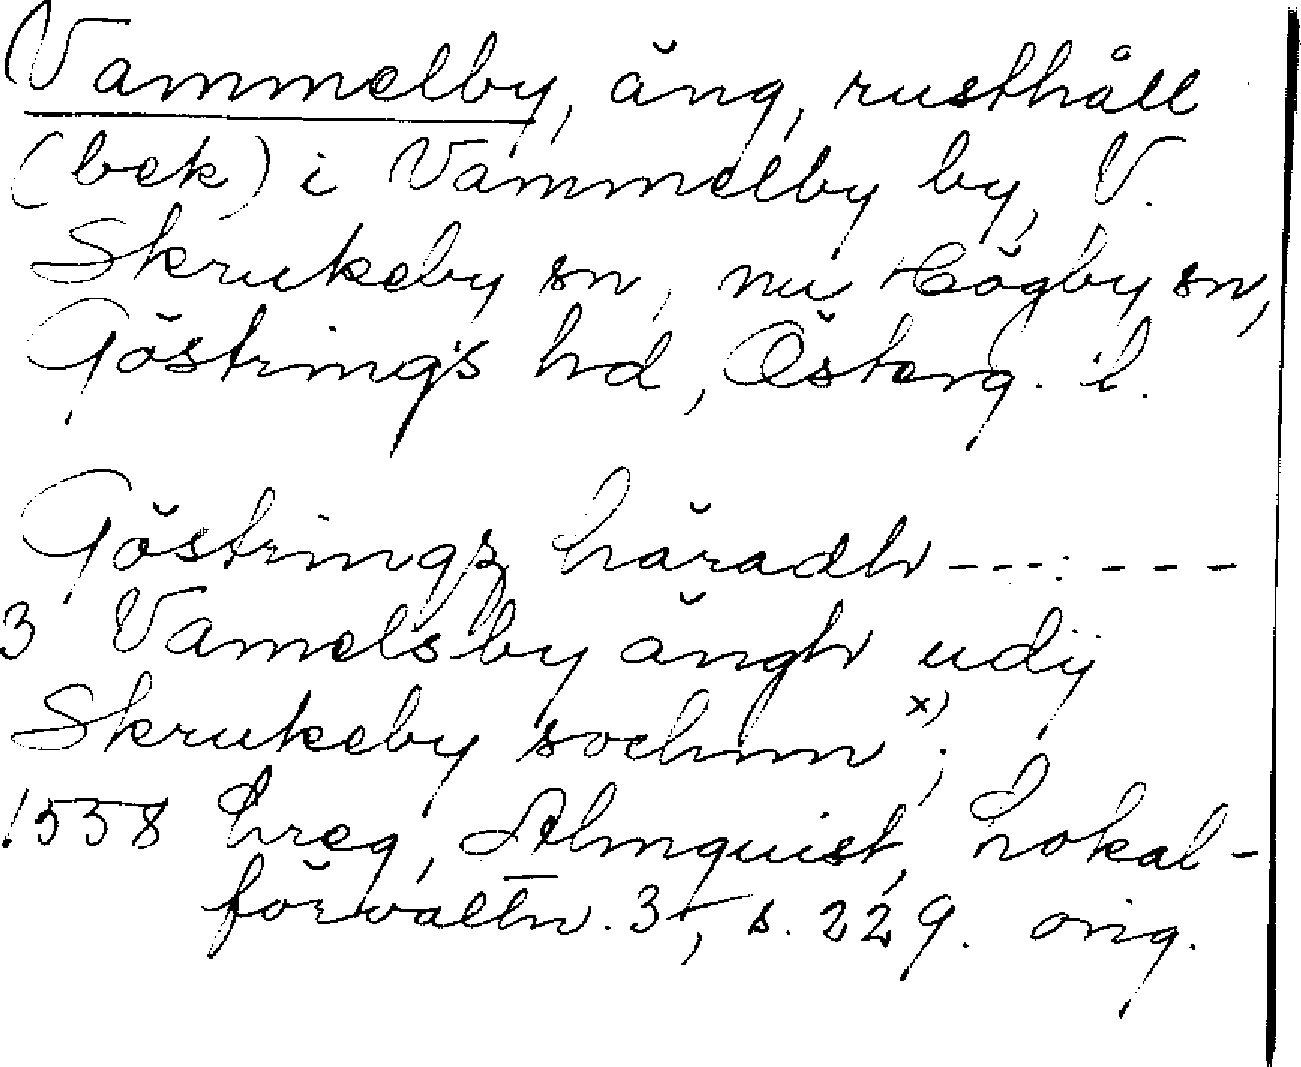 Vammelby, äng, rusthåll
(bek) i Vammelby by, V.
Skrukeby sn, nu Högby sn,
Göstrings hd, Österg. l.
Göstringz häradh - - - - - -
3 Vamelsby ängh udij
Skrukeby sochnn x);
1558 Lreg, Almquist, Lokal-
förvaltn. 3, s. 229. orig.